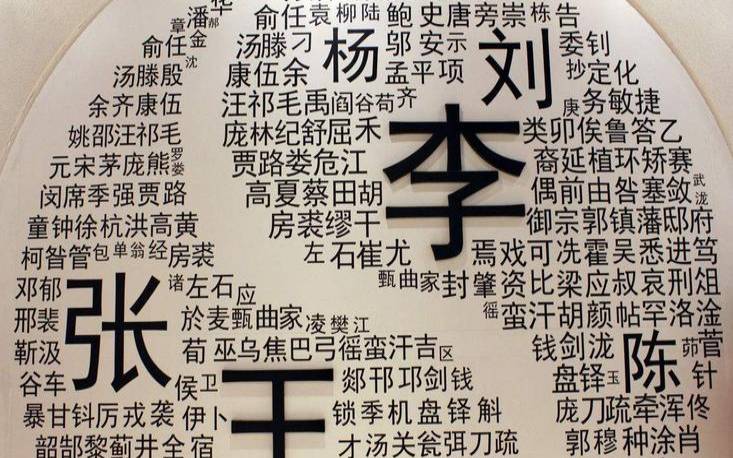 华
章 潘 俞任袁柳陆鲍史唐旁崇栋告
俞任金 汤滕刁 杨 邬安示 刘 委钊
汤滕殷沈 康伍余 孟平项 抄定化
余齐康伍 汪祁毛禹阎谷苟齐 庚务敏捷
姚邵汪祁毛 庞林纪舒屈禾 李 类卯俟鲁答乙
元宋茅庞熊罗娄 贾路娄危江 裔延植环矫赛
闵席季强贾路 高夏蔡田胡 偶前由咎塞敛武泷
童钟徐杭洪高黄 房裘缪干 御宗郭镇藩邸府
柯昝管包单翁经房裘 左石崔尤 焉戏可冼霍吴悉进笃
邓郁 张 诸左石应 甄曲家封肇资比梁应叔哀刑俎
邢裴 於麦甄曲家凌樊江 徭蛮汗胡颜帖罕洛淦
靳汲 荀巫乌焦巴弓徭蛮汗吉区 钱剑泷 陈 茆菅
谷车 侯卫 王 郯邗邛剑钱 盘铎玉 针
暴甘钭厉戎袭伊卜 锁季机盘铎斛 庞刀疏牵浑佟
韶郜黎蓟井全宿 才汤关瓮弭刀疏 郭穆种涂肖